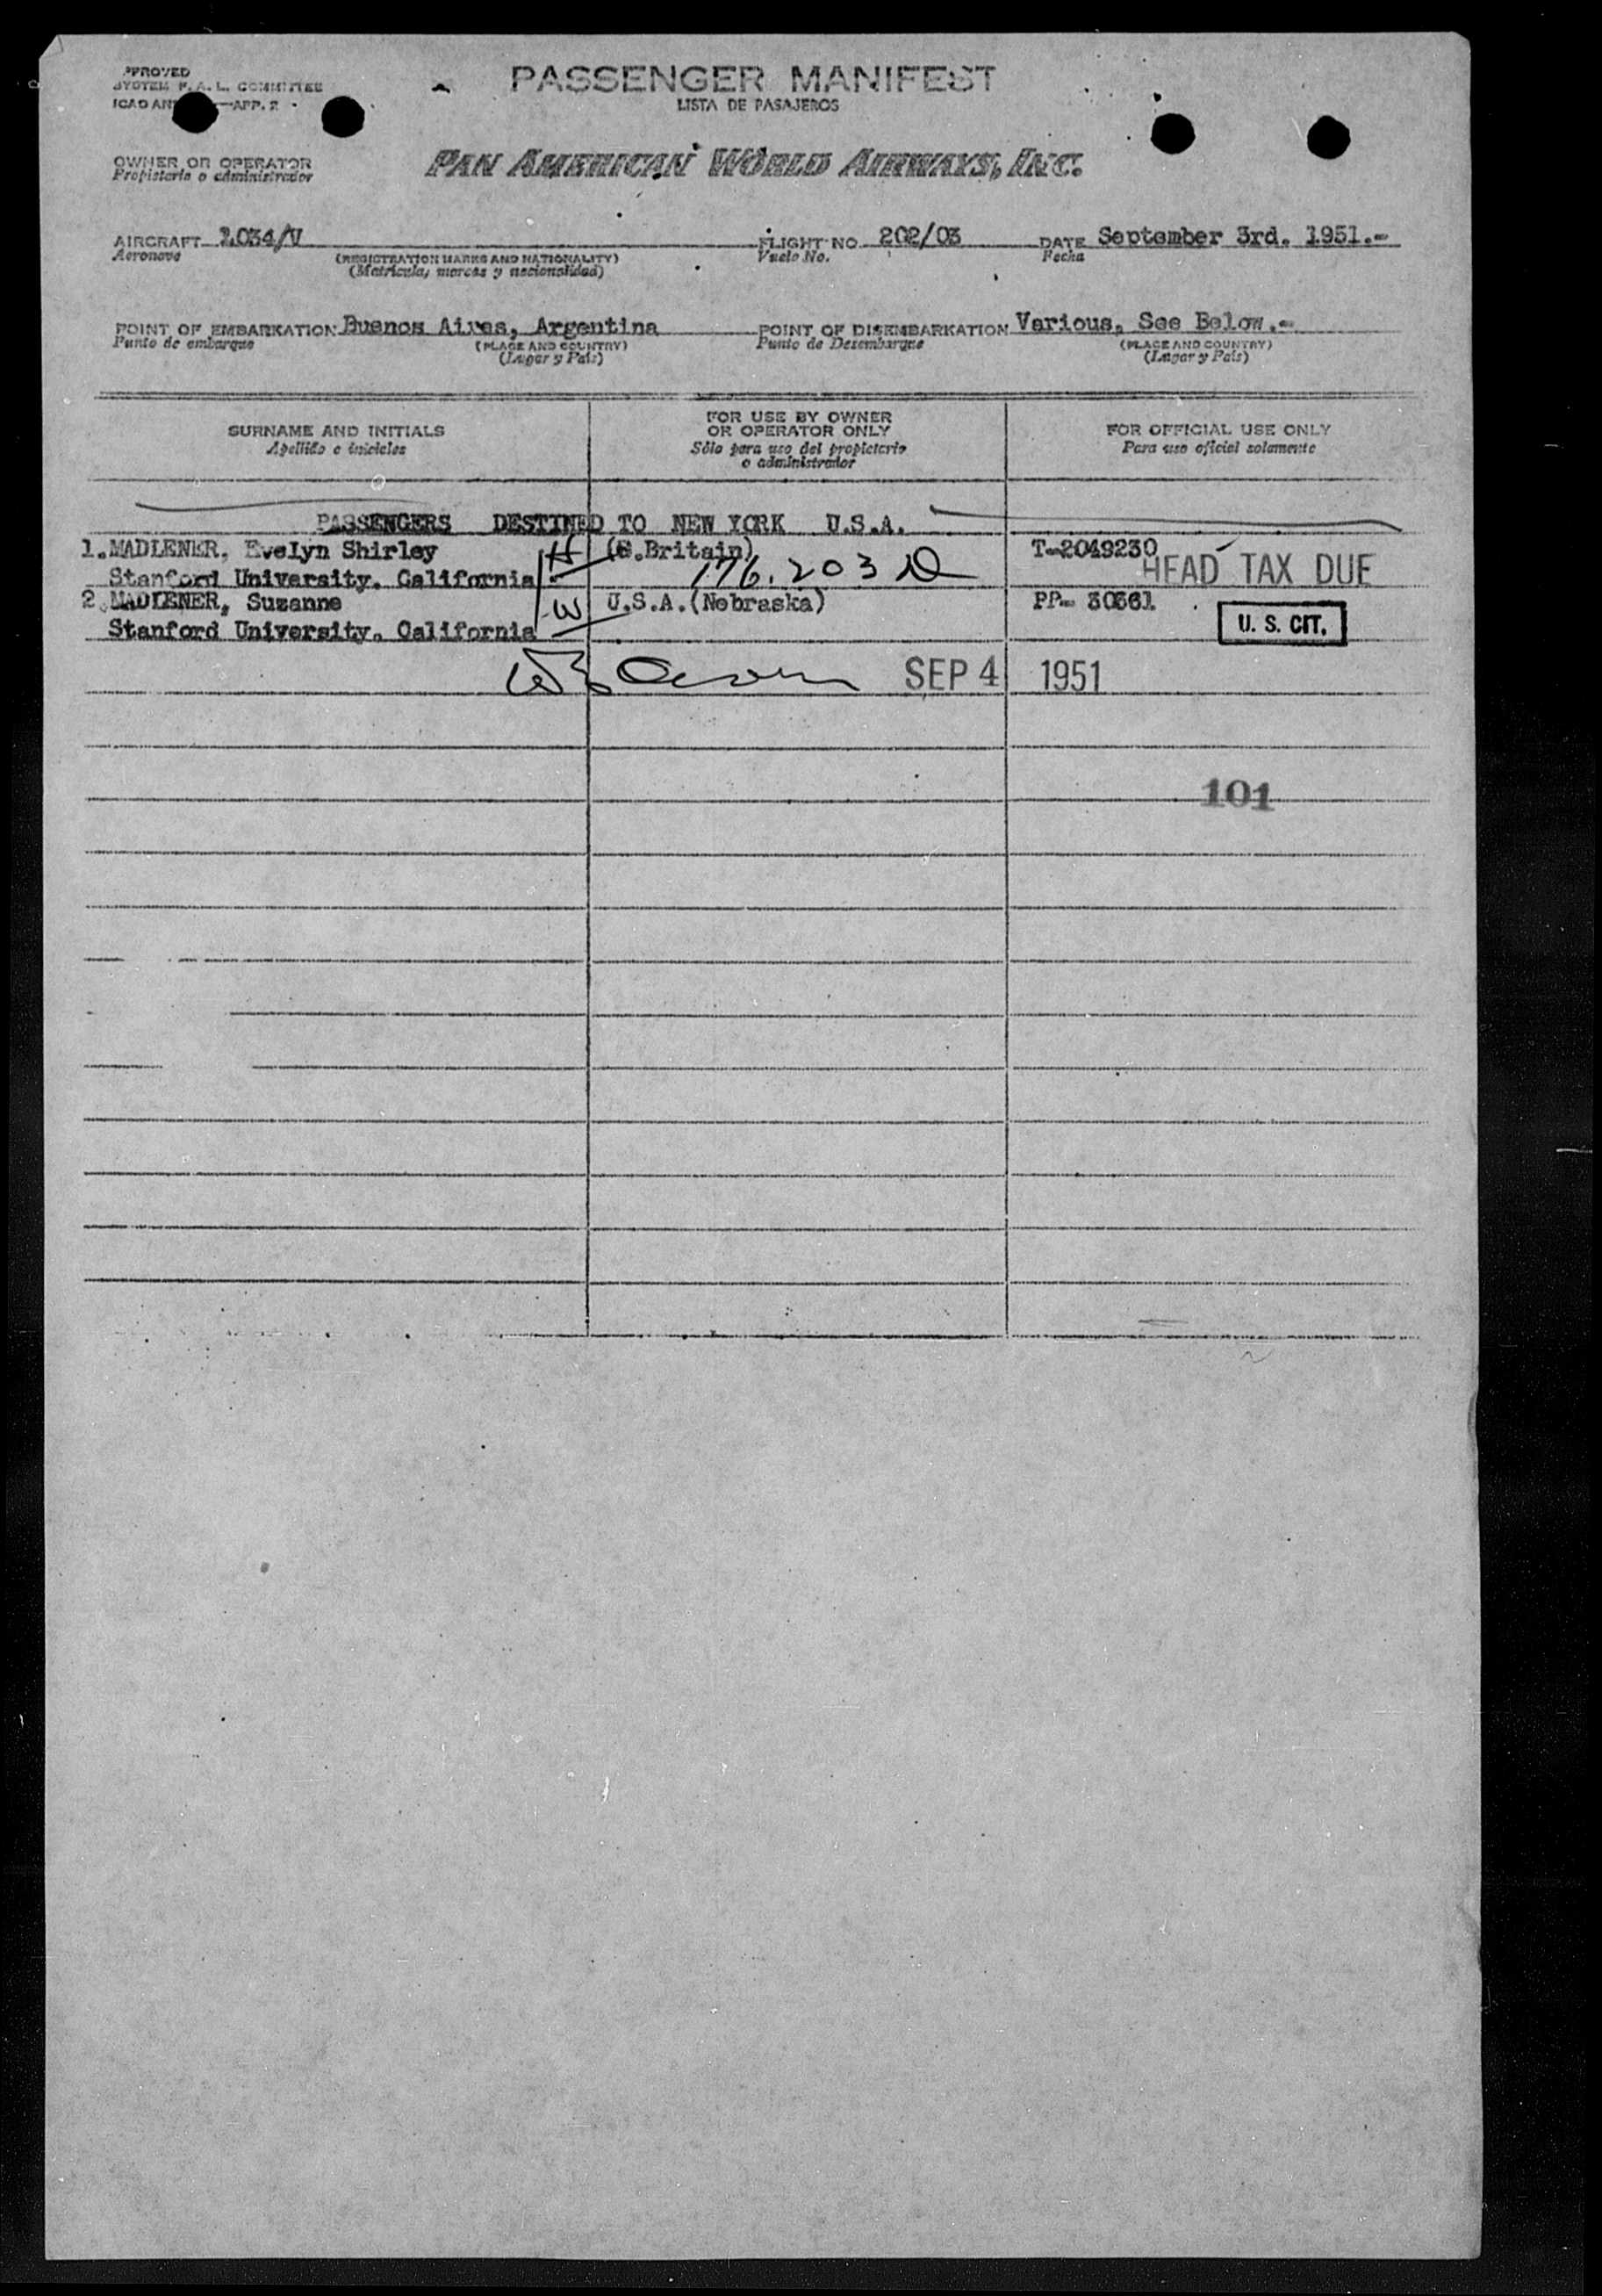 PASSENGER MANIFEST
LISTA DE PASAJEROS
APPROVED
SYSTEM F. A. L. COMMITTEE
ICAO AN —APP. 2
OWNER OR OPERATOR
Propietario o administrador
PAN AMERICAN WORLD AIRWAYS, INC.
AIRCRAFT 1034/V FLIGHT NO. 202/03 DATE September 3rd. 1951.-
Aeronave (REGISTRATION MARKS AND NATIONALITY) Vuelo No. Fecha
(Matricula, marcas y nacionalidad)
POINT OF EMBARKATION Buenos Aires, Argentina POINT OF DISEMBARKATION Various, See Below.-
Punto de embarque (PLACE AND COUNTRY) Punto de Desembarque (PLACE AND COUNTRY)
(Lugar y País) (Lugar y País)
SURNAME AND INITIALS
Apellido e iniciales
FOR USE BY OWNER
OR OPERATOR ONLY
Sólo para uso del propietario
o administrador
FOR OFFICIAL USE ONLY
Para uso oficial solamente
PASSENGERS DESTINED TO NEW YORK U.S.A.
1. MADLENER, Evelyn Shirley H (G.Britain) T-2049230
Stanford University. California 176.203 D HEAD TAX DUE
2. MADLENER, Suzanne W U.S.A.(Nebraska) PP- 30361
Stanford University. California U. S. CIT.
SEP 4 1951
101